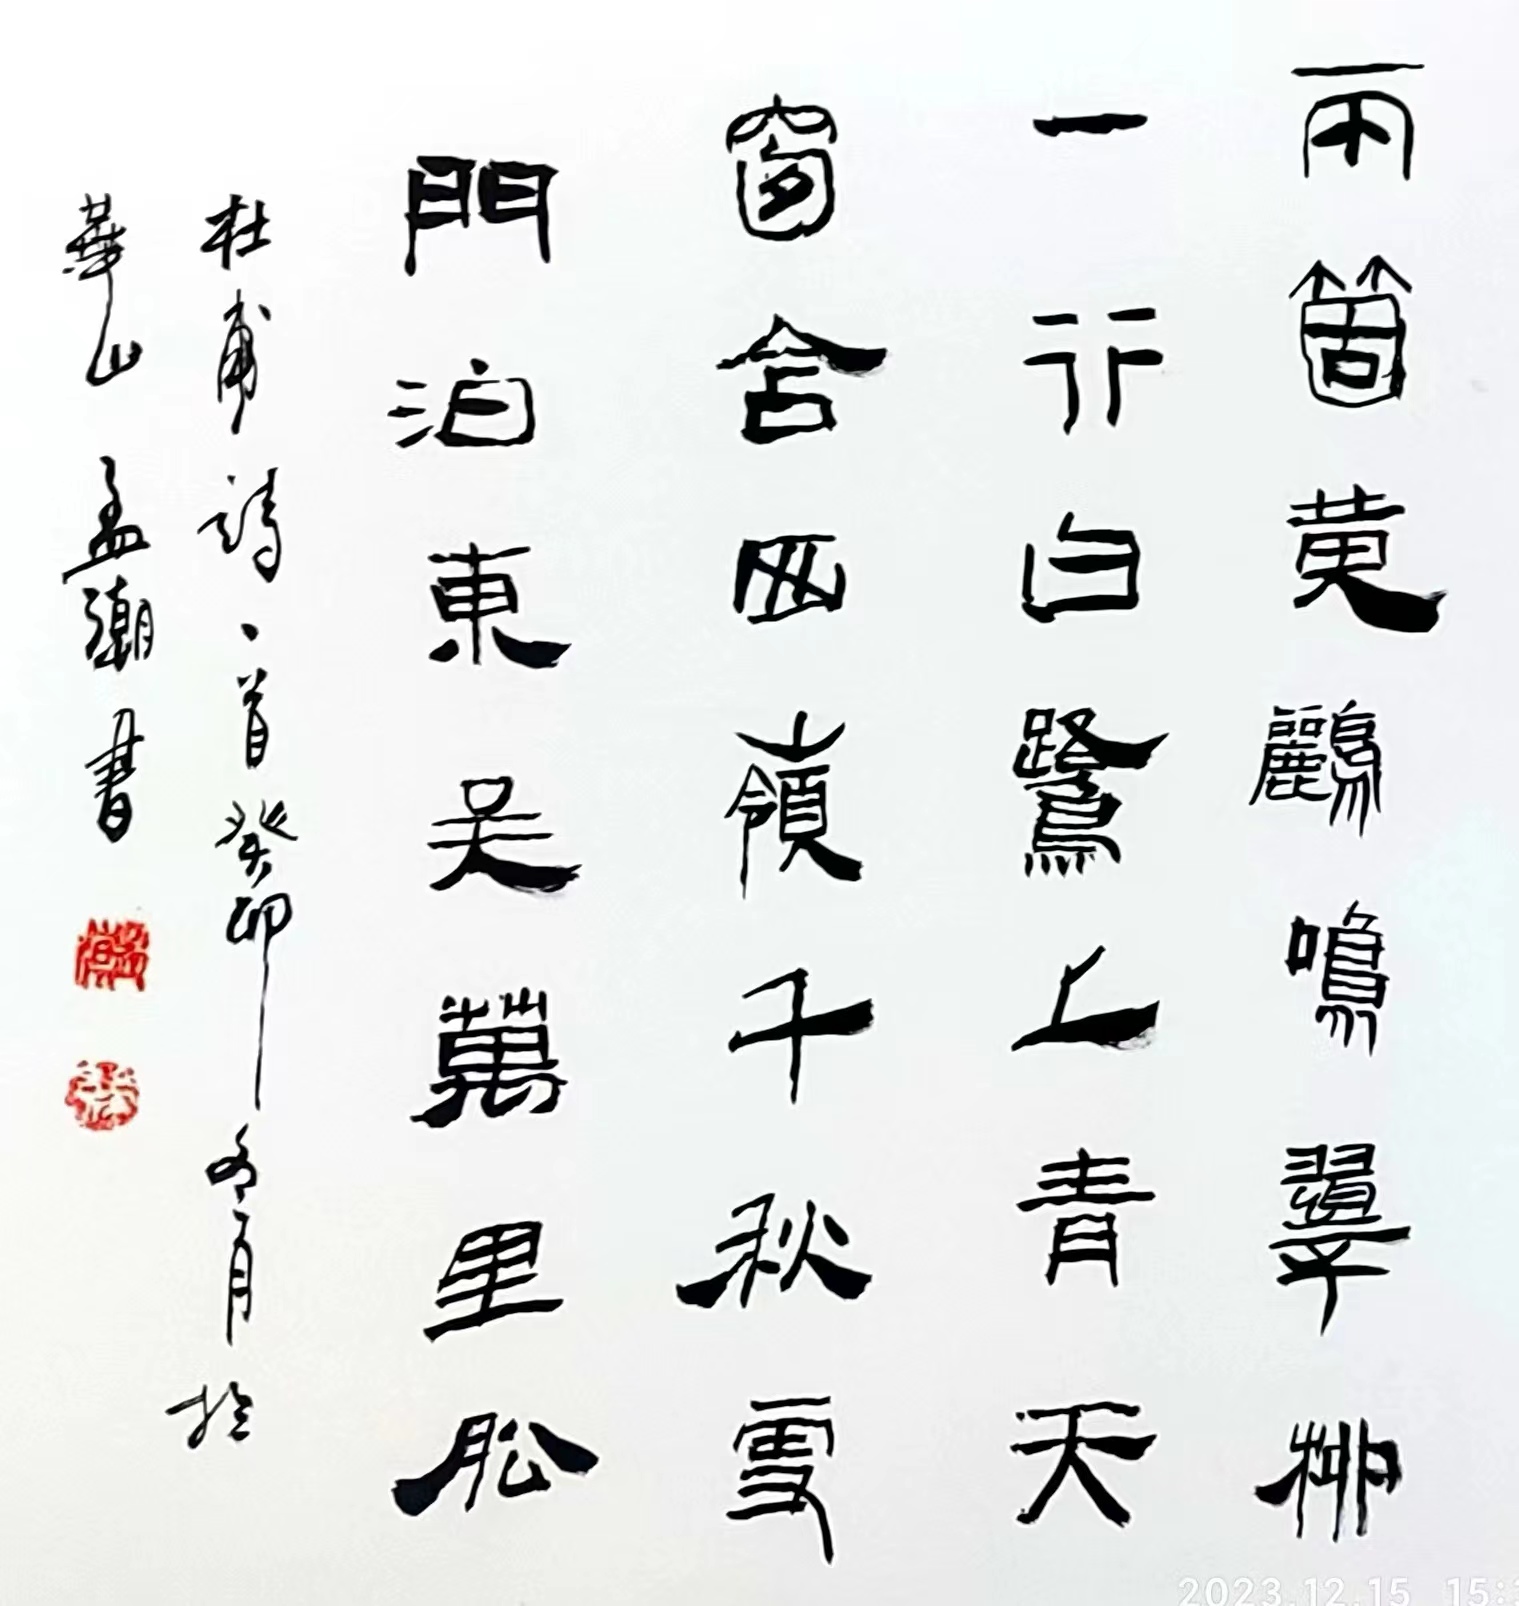 兩箇黃鸝鳴翠柳
一行白鷺上青天
窗含西嶺千秋雪
門泊東吳萬里船
杜甫詩一首癸卯冬月於
華山孟潮書
2023.12.15 15: